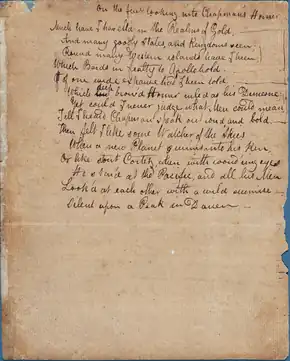 On the first looking into Chapman's Homer
Much have I travell'd in the Realms of Gold,
And many goodly States, and Kingdoms seen;
Round many Western islands have I been,
Which Bards in fealty to Apollo hold.
Of one wide expanse had I been told,
Which deep brow'd Homer ruled as his Demesne:
Yet could I never judge what Men could mean,
Till I heard Chapman speak out loud and bold.
Then felt I like some Watcher of the Skies
When a new Planet swims into his Ken,
Or like stout Cortez, when with wond'ring eyes
He star'd at the Pacific, and all his Men
Look'd at each other with a wild surmise
Silent upon a Peak in Darien